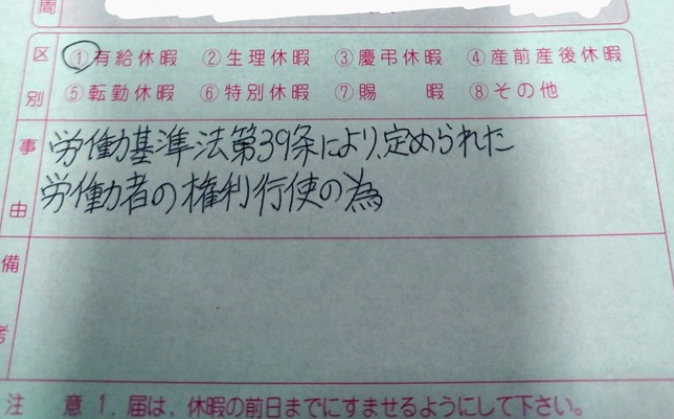 間
区別
①有給休暇 ②生理休暇 ③慶弔休暇 ④産前産後休暇
⑤転勤休暇 ⑥特別休暇 ⑦賜 暇 ⑧その他
事由
労働基準法第39条により、定められた
労働者の権利行使の為
備考
注 意 1. 届は、休暇の前日までにすませるようにして下さい。